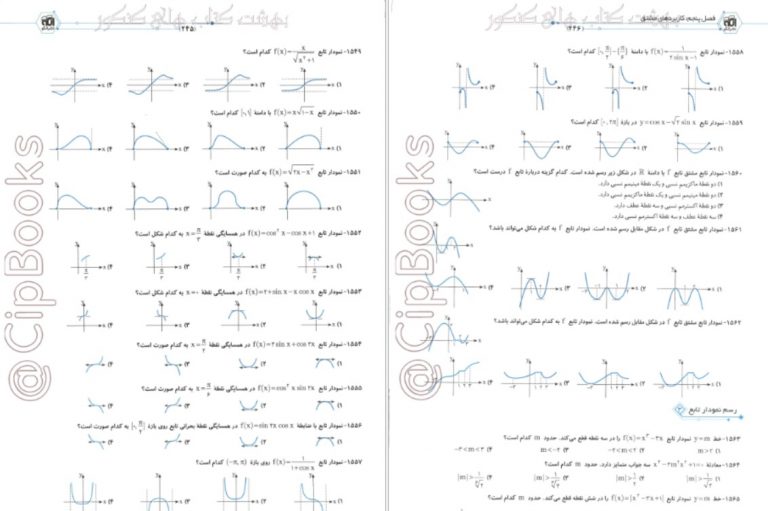 بهشت کتاب های کنکور
(۲۴۵)
۱۵۴۹- نمودار تابع f(x)=x/√(x²+1) کدام است؟
۱) ۲) ۳) ۴)
۱۵۵۰- نمودار تابع f(x)=x√(۱-x) با دامنهٔ [۰,۱] کدام است؟
۱) ۲) ۳) ۴)
۱۵۵۱- نمودار تابع f(x)=√(۲x-x²) به کدام صورت است؟
۱) ۲) ۳) ۴)
۱۵۵۲- نمودار تابع f(x)=cos²x-cosx+۱ در همسایگی نقطهٔ x=π/۳ به کدام شکل است؟
۱) ۲) ۳) ۴)
۱۵۵۳- نمودار تابع f(x)=۲+sinx-x cosx در همسایگی نقطهٔ x=۰ به کدام شکل است؟
۱) ۲) ۳) ۴)
۱۵۵۴- نمودار تابع f(x)=۲sinx+cos۲x در همسایگی نقطهٔ x=π/۲ به کدام صورت است؟
۱) ۲) ۳) ۴)
۱۵۵۵- نمودار تابع f(x)=cos²x sin۲x در همسایگی نقطهٔ x=π/۶ به کدام صورت است؟
۱) ۲) ۳) ۴)
۱۵۵۶- نمودار تابع با ضابطهٔ f(x)=sin۲x cosx در همسایگی نقطهٔ بحرانی تابع روی بازهٔ [۰,π/۲] به کدام صورت است؟
۱) ۲) ۳) ۴)
۱۵۵۷- نمودار تابع f(x)=۱/(۱+cosx) روی بازهٔ (-π,π) کدام است؟
۱) ۲) ۳) ۴)
@CipBooks
بهشت کتاب های کنکور
فصل پنجم: کاربردهای مشتق
(۲۴۶)
۱۵۵۸- نمودار تابع f(x)=۱/(۲sinx-۱) با دامنهٔ [۰,π/۲]-{π/۶} کدام است؟
۱) ۲) ۳) ۴)
۱۵۵۹- نمودار تابع y=cosx-√۲ sinx در بازهٔ [۰,۲π] کدام است؟
۱) ۲) ۳) ۴)
۱۵۶۰- نمودار تابع مشتق تابع f با دامنهٔ R در شکل زیر رسم شده است. کدام گزینه دربارهٔ تابع f درست است؟
۱) دو نقطهٔ ماکزیمم نسبی و یک نقطهٔ مینیمم نسبی دارد.
۲) دو نقطهٔ مینیمم نسبی و یک نقطهٔ ماکزیمم نسبی دارد.
۳) دو نقطهٔ اکسترمم نسبی و سه نقطهٔ عطف دارد.
۴) سه نقطهٔ عطف و سه نقطهٔ اکسترمم نسبی دارد.
۱۵۶۱- نمودار تابع مشتق تابع f در شکل مقابل رسم شده است. نمودار تابع f به کدام شکل می‌تواند باشد؟
۱) ۲) ۳) ۴)
۱۵۶۲- نمودار تابع مشتق تابع f در شکل مقابل رسم شده است. نمودار تابع f به کدام شکل می‌تواند باشد؟
۱) ۲) ۳) ۴)
رسم نمودار تابع ۲
۱۵۶۳- خط y=m نمودار تابع f(x)=x³-۳x را در سه نقطه قطع می‌کند. حدود m کدام است؟
۱) m>۲ ۲) -۲<m<۲ ۳) m<-۲ ۴) -۳<m<۳
۱۵۶۴- معادلهٔ x³-۲m²x²+۱=۰ سه جواب متمایز دارد. حدود m کدام است؟
۱۵۶۵- خط y=m نمودار تابع f(x)=|x³-۳x+۱| را در شش نقطه قطع می‌کند. حدود m کدام است؟
@CipBooks